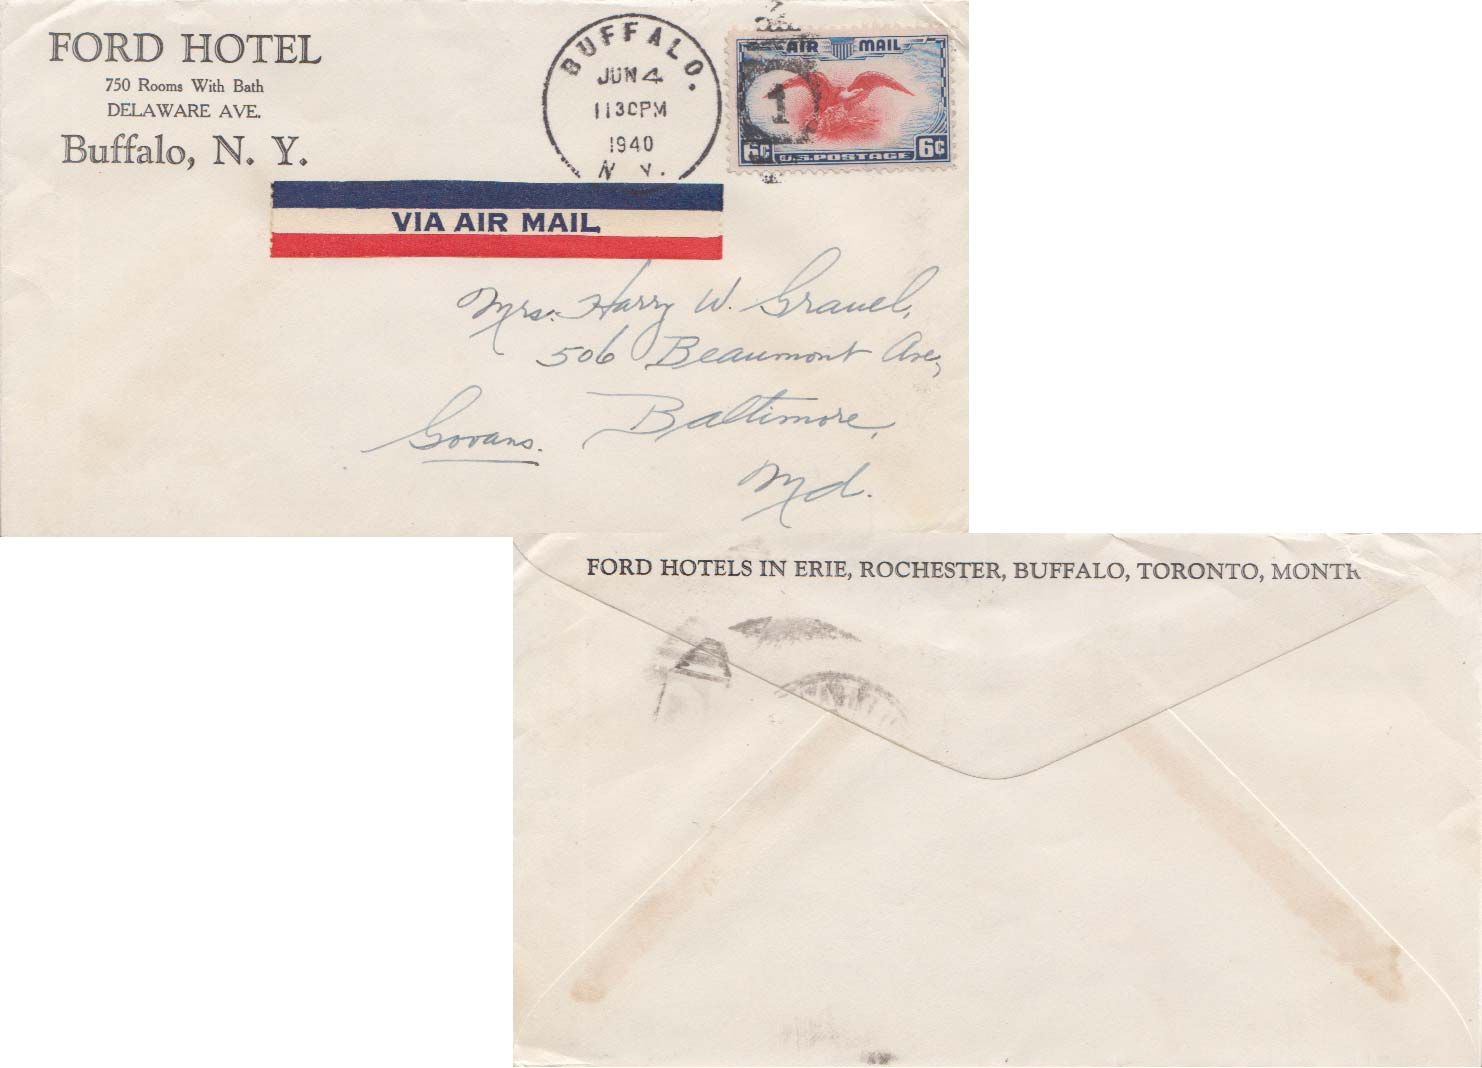 FORD HOTEL
750 Rooms With Bath
DELAWARE AVE.
Buffalo, N. Y.
BUFFALO.
JUN 4
1130PM
1940
N. Y.
AIR MAIL
1
6¢ U.S.POSTAGE 6¢
VIA AIR MAIL
Mrs. Harry W. Gravel,
506 Beaumont Ave,
Baltimore,
Govans.
Md.
FORD HOTELS IN ERIE, ROCHESTER, BUFFALO, TORONTO, MONTR